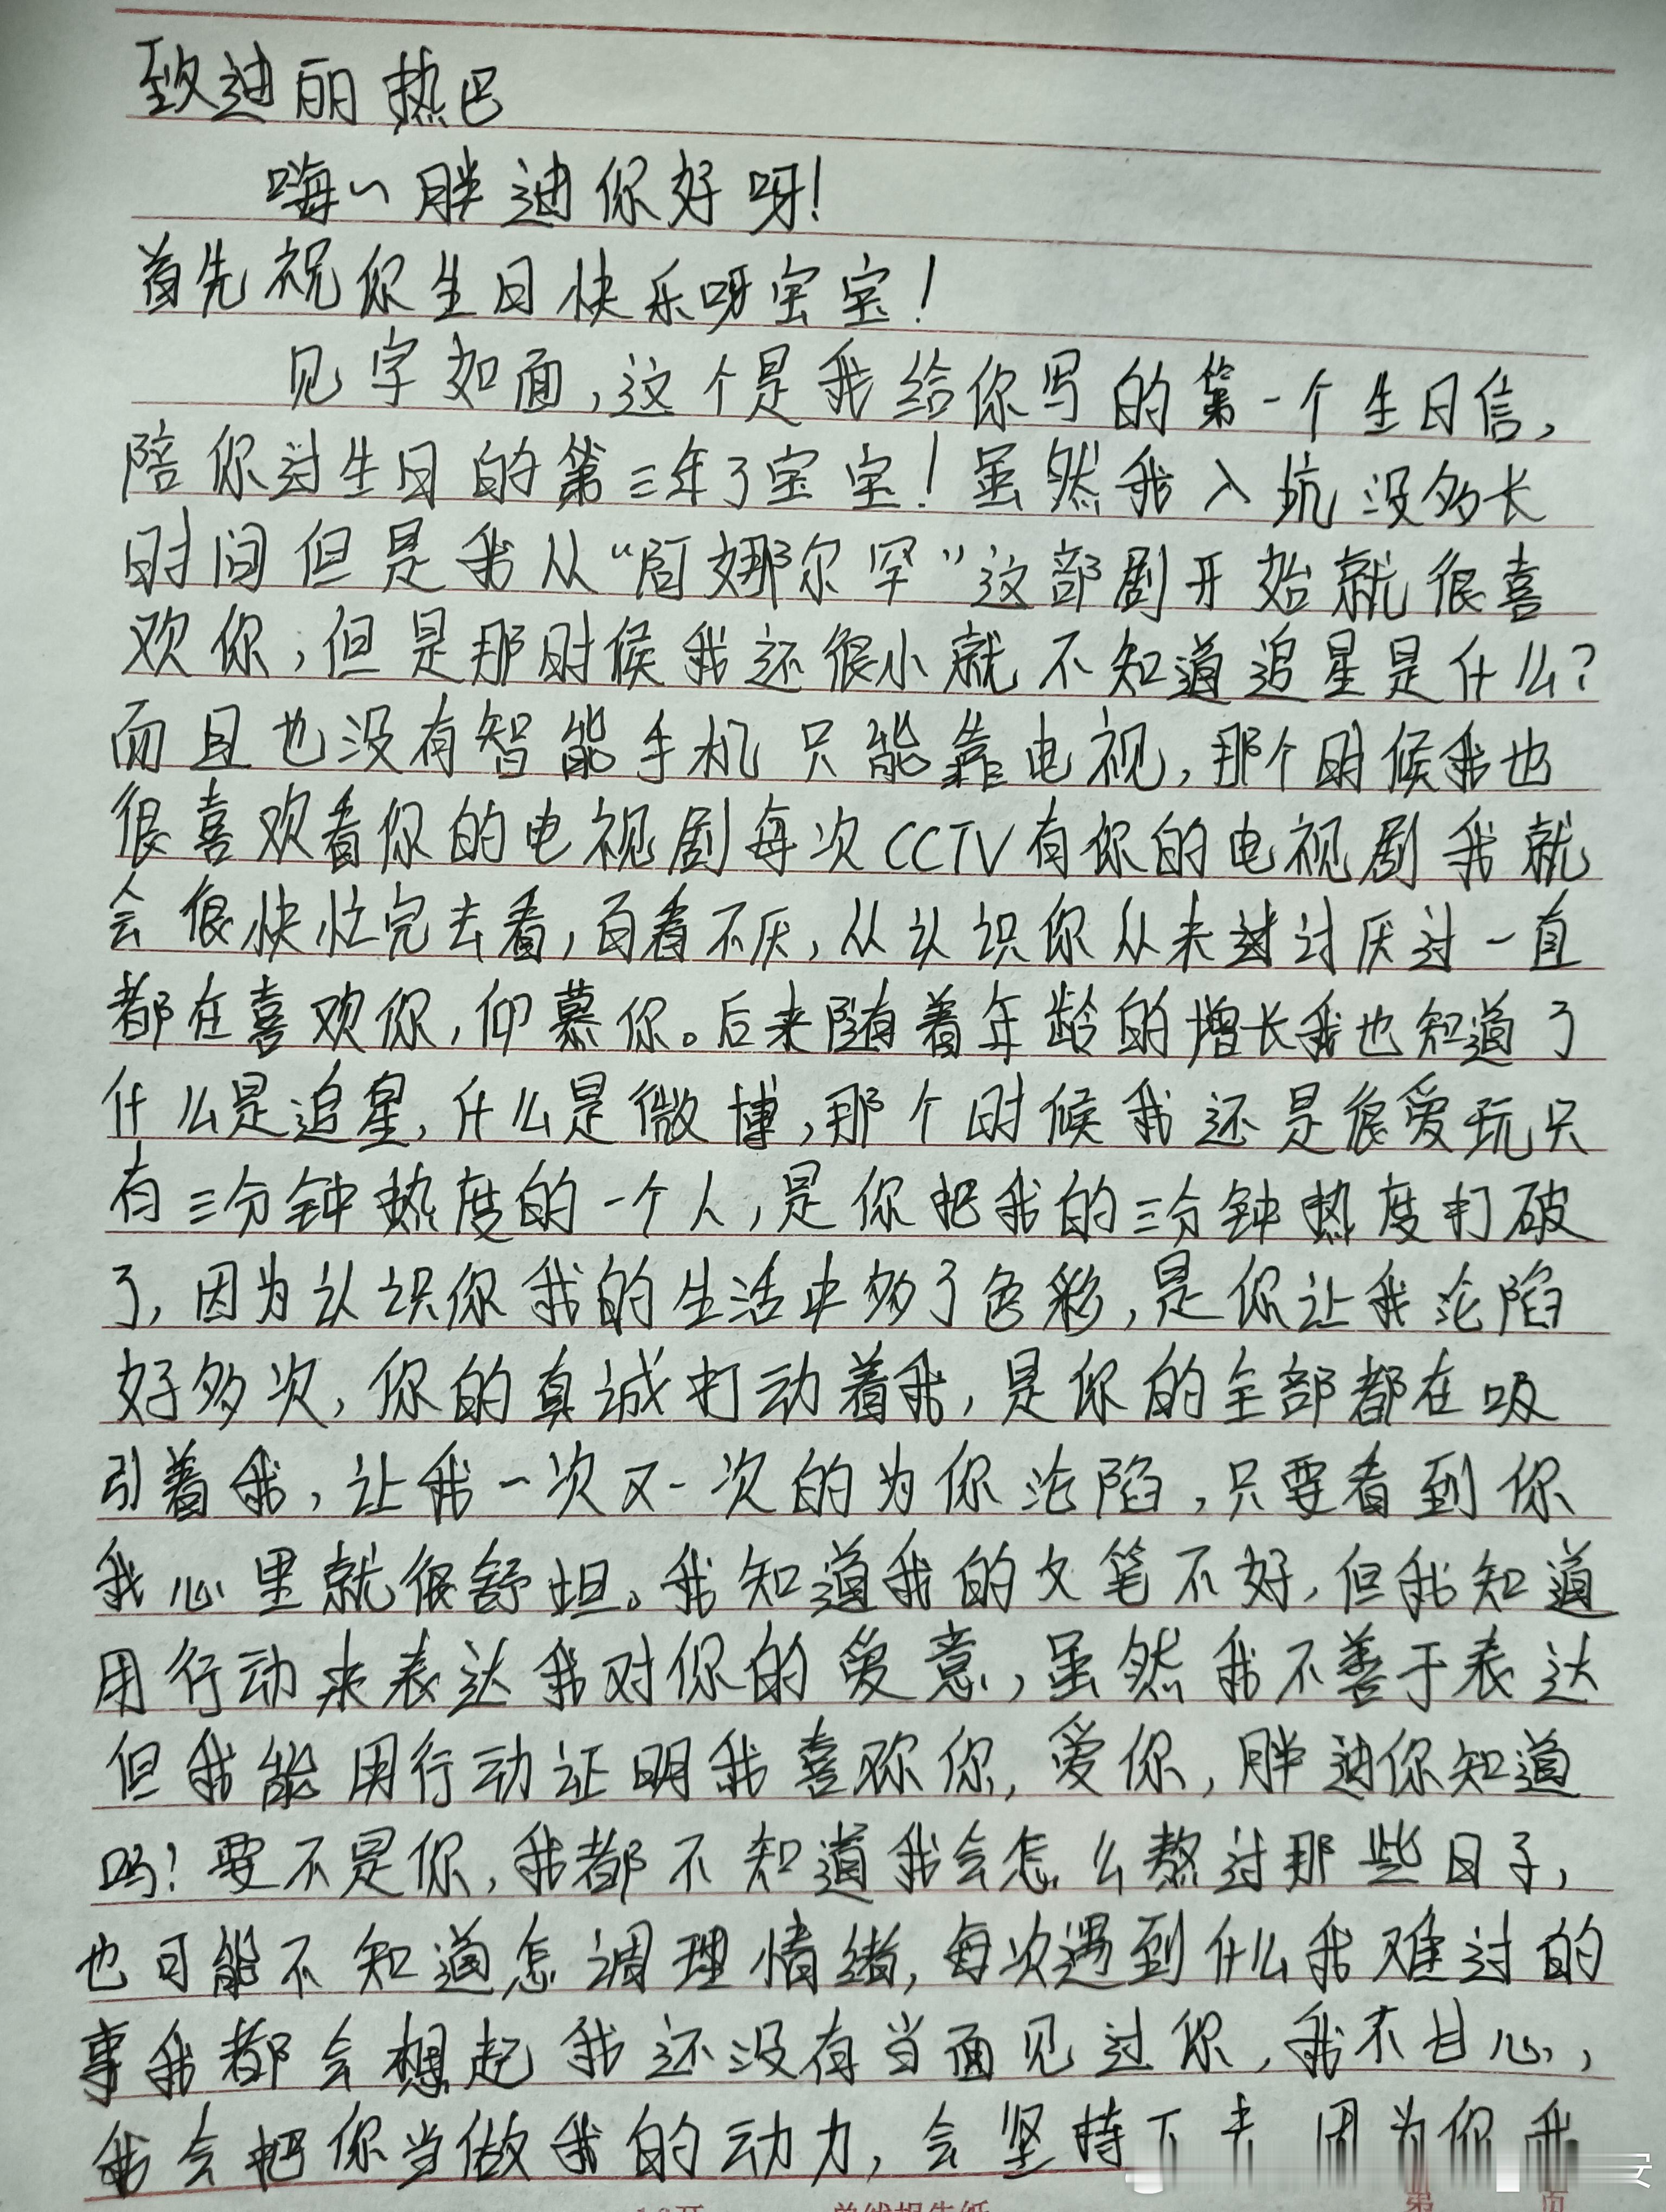 致迪丽热巴
嗨~胖迪你好呀!
首先祝你生日快乐呀宝宝!
见字如面,这个是我给你写的第一个生日信,
陪你过生日的第三年了宝宝!虽然我入坑没多长
时间但是我从“阿娜尔罕”这部剧开始就很喜
欢你,但是那时候我还很小就不知道追星是什么?
而且也没有智能手机只能靠电视,那个时候我也
很喜欢看你的电视剧每次CCTV有你的电视剧我就
会很快忙完去看,百看不厌,从认识你从未过讨厌过一直
都在喜欢你,仰慕你。后来随着年龄的增长我也知道了
什么是追星,什么是微博,那个时候我还是很爱玩只
有三分钟热度的一个人,是你把我的三分钟热度打破
了,因为认识你我的生活中多了色彩,是你让我沦陷
好多次,你的真诚打动着我,是你的全部都在吸
引着我,让我一次又一次的为你沦陷,只要看到你
我心里就很舒坦。我知道我的文笔不好,但我知道
用行动来表达我对你的爱意,虽然我不善于表达
但我能用行动证明我喜欢你,爱你,胖迪你知道
吗?要不是你,我都不知道我会怎么熬过那些日子,
也可能不知道怎调理情绪,每次遇到什么我难过的
事我都会想起我还没有当面见过你,我不甘心,
我会把你当做我的动力,会坚持下去因为你我
第 页